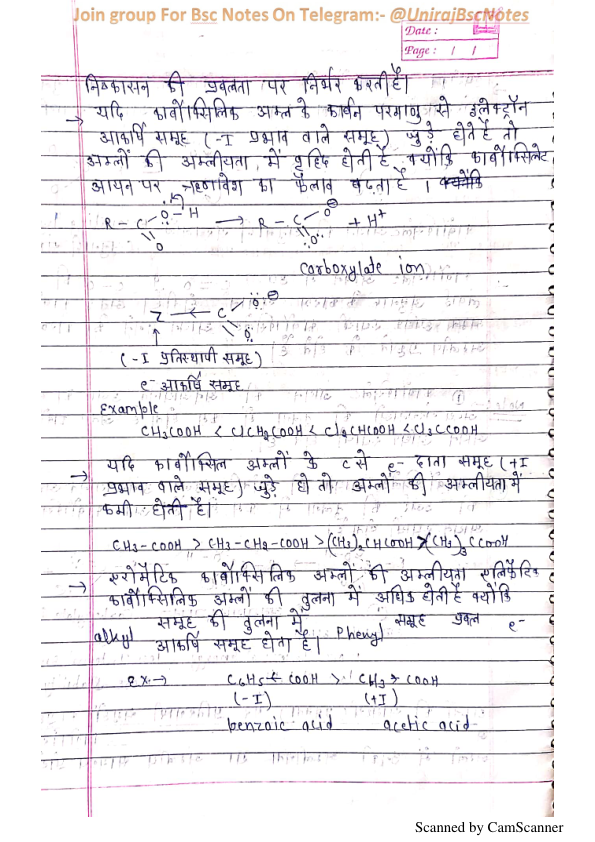 Join group For Bsc Notes On Telegram:- @UnirajBscNotes
Date :
Page : / /
निष्कासन की प्रबलता पर निर्भर करती है।
→ यदि कार्बोक्सिलिक अम्ल के कार्बन परमाणु से इलेक्ट्रॉन
आकर्षि समूह (-I प्रभाव वाले समूह) जुड़े होते है तो
अम्लों की अम्लीयता में वृद्धि होती है क्योंकि कार्बोक्सिलेट
आयन पर ऋणावेश का फैलाव बढता है । क्योंकि
R - C O - H → R - C O ⊖ + H⁺
O O
carboxylate ion
Z ← C O ⊖
O
(-I प्रतिस्थापी समूह)
e⁻ आकर्षि समूह
Example
CH₃COOH < ClCH₂COOH < Cl₂CHCOOH < Cl₃CCOOH
→ यदि कार्बोक्सिल अम्लों के C से e⁻ दाता समूह (+I
प्रभाव वाले समूह) जुड़े हो तो अम्लों की अम्लीयता में
कमी होती है।
CH₃-COOH > CH₃-CH₂-COOH > (CH₃)₂CHCOOH > (CH₃)₃CCOOH
→ एरोमैटिक कार्बोक्सिलिक अम्लों की अम्लीयता एलिफेटिक
कार्बोक्सिलिक अम्लों की तुलना में अधिक होती है क्योंकि
alkyl समूह की तुलना में Phenyl समूह प्रबल e⁻
आकर्षि समूह होता है।
ex.→ C₆H₅ ← COOH > CH₃ → COOH
(-I) (+I)
benzoic acid acetic acid
Scanned by CamScanner